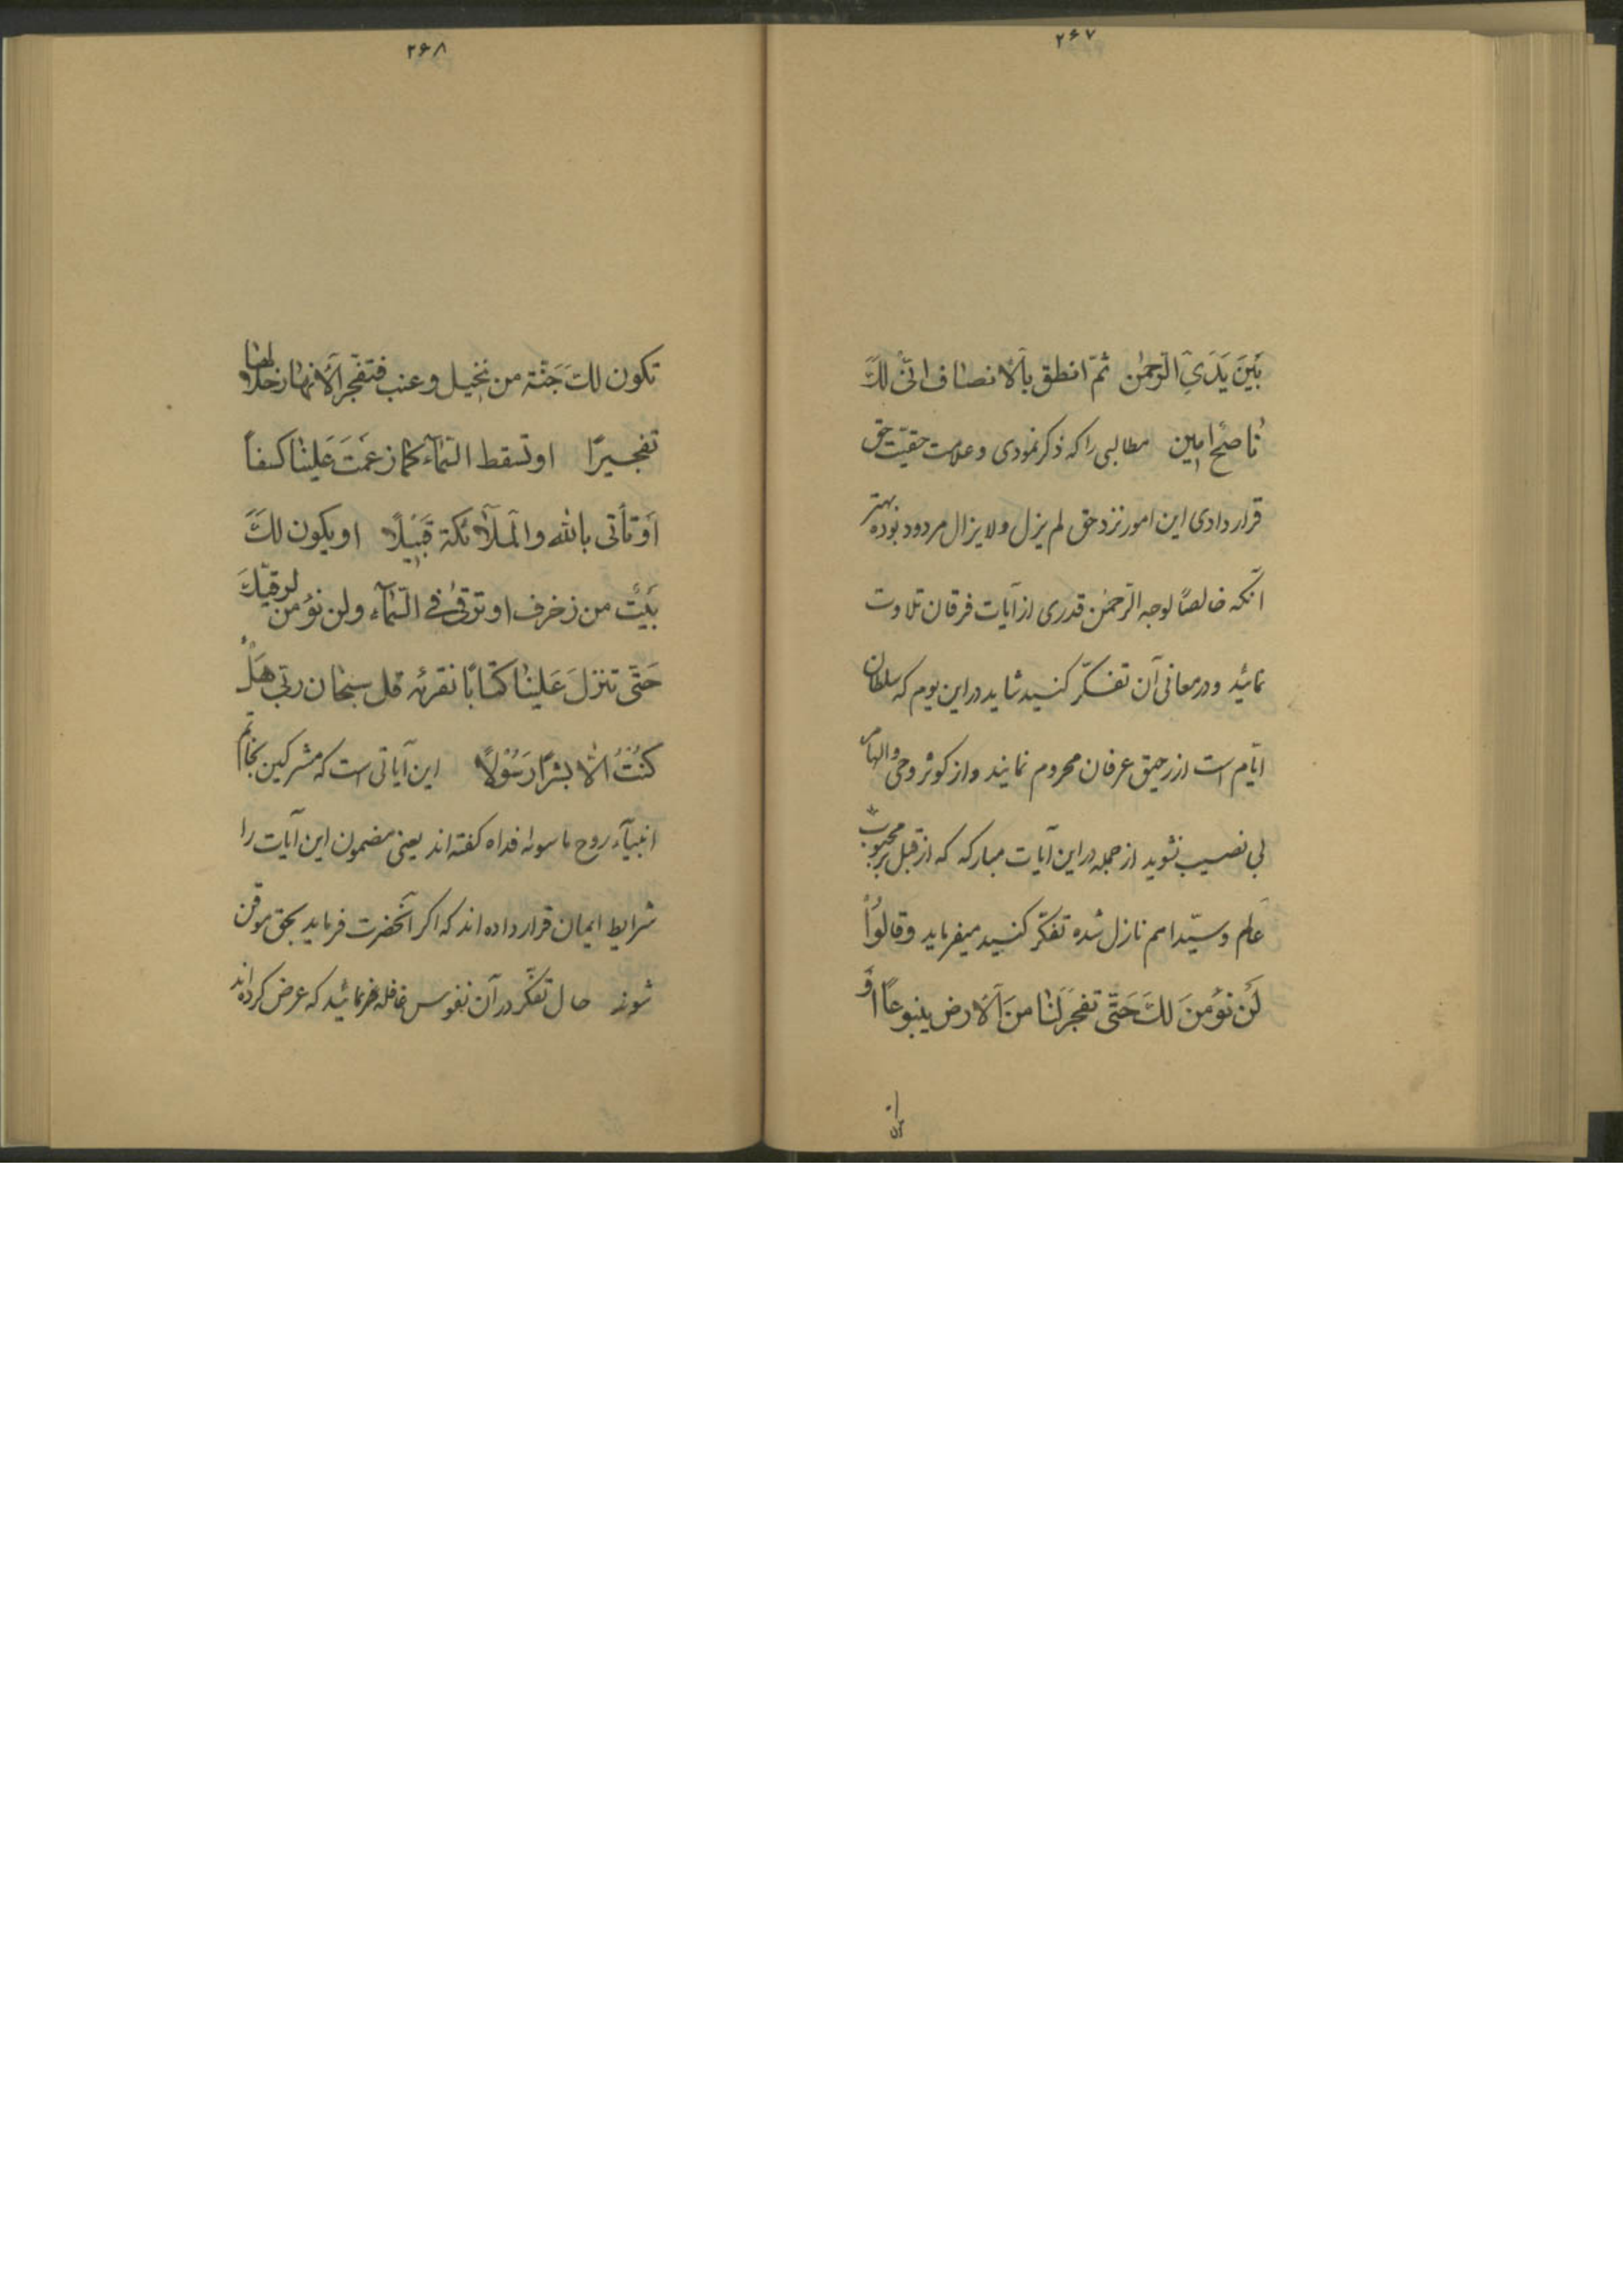 ۲۶۷
بَيْنَ يَدَيِ الرّحمٰن ثمّ انطق بالأنصاف انّى لَكَ
ناصحٌ امين مطالبی را که ذکر نمودی و علامت حقیّت حق
قرار دادی این امور نزد حق لم یزل و لا یزال مردود بوده بهتر
آنکه خالصًا لوجه الرّحمٰن قدری از آیات فرقان تلاوت
نمائید و در معانی آن تفکّر کنید شاید در این یوم که سلطان
ایّام است از رحیق عرفان محروم نمانید و از کوثر وحی و الهام
بی نصیب نشوید از جمله در این آیات مبارکه که از قبل بر محبوب
عالم و سیّد امم نازل شده تفکّر کنید میفرماید وقالُوا
لَن نؤمنَ لكَ حَتّى تفجرَ لَنا منَ الأرض ينبوعًا اوْ
۲۶۸
تكون لكَ جَنّة من نخيل وعنب فتفجّر الأنهار خلالها
تفجيرًا او تسقط السّمآء كما زعَمتَ عَلينا كسفاً
اَو تأتى بالله والملآئكة قَبيلًا او يكون لكَ
بَيْتٌ من زخرف او ترقىٰ فى السّمآء ولن نؤمن لرقيّكَ
حَتّى تنزلَ عَلينا كتابًا نقرئه قل سبحان ربّى هَلْ
كنْتُ الّا بشرًا رَسُولًا این آیاتی است که مشرکین بخاتم
انبیآء روح ما سواه فداه گفته اند یعنی مضمون این آیات را
شرایط ایمان قرار داده اند که اگر آنحضرت فرماید بحق موقن
شوند حال تفکّر در آن نفوس غافله فرمائید که عرض کرده اند